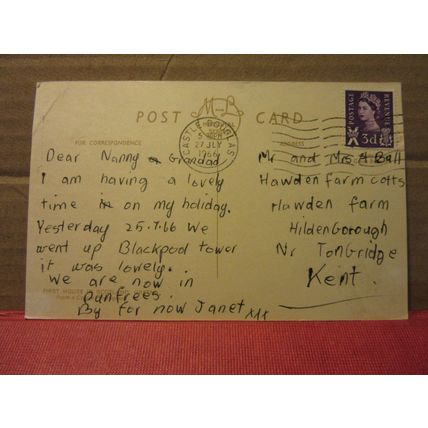 POST CARD
FOR CORRESPONDENCE
ADDRESS
CASTLE DOUGLAS
27 JLY
1966
POSTAGE
REVENUE
3d
Dear Nanny & Grandad
I am having a lovely
time in on my holiday.
Yesterday 25.7.66 We
went up Blackpool tower
it was lovely.
We are now in
Dunfrees.
By for now Janet xxx
Mr and Mrs Ball
Hawden farm cotts
Hawden farm
Hildenborough
Nr Tonbridge
Kent.
FIRST HOUSE